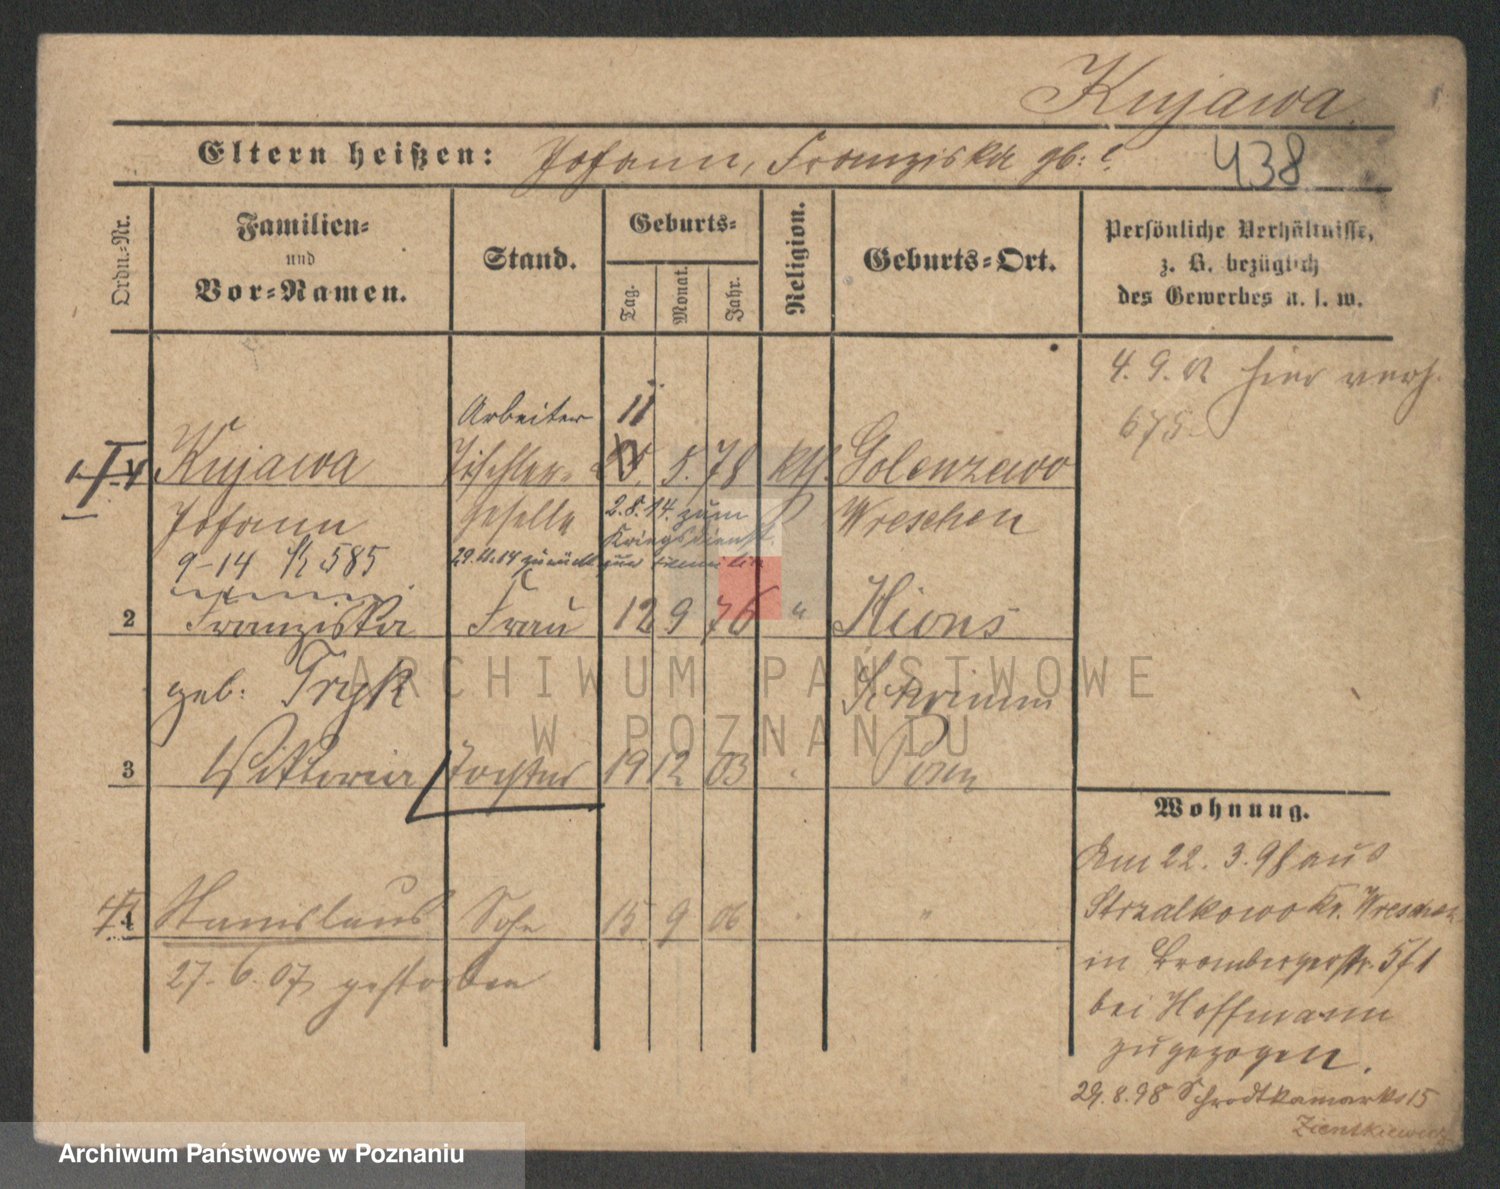 Kujawa
Eltern heißen: Johann, Franziska gb: ?
438
Ordn.-Nr.
Familien-
und
Vor-Namen.
Stand.
Geburts-
Tag.
Monat.
Jahr.
Religion.
Geburts-Ort.
Persönliche Verhältnisse,
z. B. bezüglich
des Gewerbes u. s. w.
4. 9. 02 hier verh.
675
Arbeiter 11
Kujawa Tischler- 5. 78 kth. Golenzewo
Johann geselle 2.8.14. zum Wreschen
Kriegsdienst
9-14 585 29.11.14 zurück zur
2 Franziska Frau 12 9 76 " Xions
geb: Tryk Schrimm
3 Viktoria Tochter 19 12 03 " Posen
4 Stanislaus Sohn 15 9 06 " "
27. 6. 07 gestorben
Wohnung.
Am 22. 3. 98 aus
Strzalkowo Kr. Wreschen
in Brombergerstr. 5/1
bei Hoffmann
zugezogen.
29.8.98 Schrodkamarkt 15
Zientkiewicz
ARCHIWUM PAŃSTWOWE
W POZNANIU
Archiwum Państwowe w Poznaniu